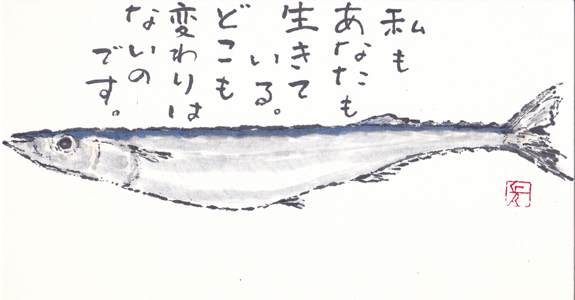 私も
あなたも
生きて
いる。
どこも
変わりは
ないの
です。